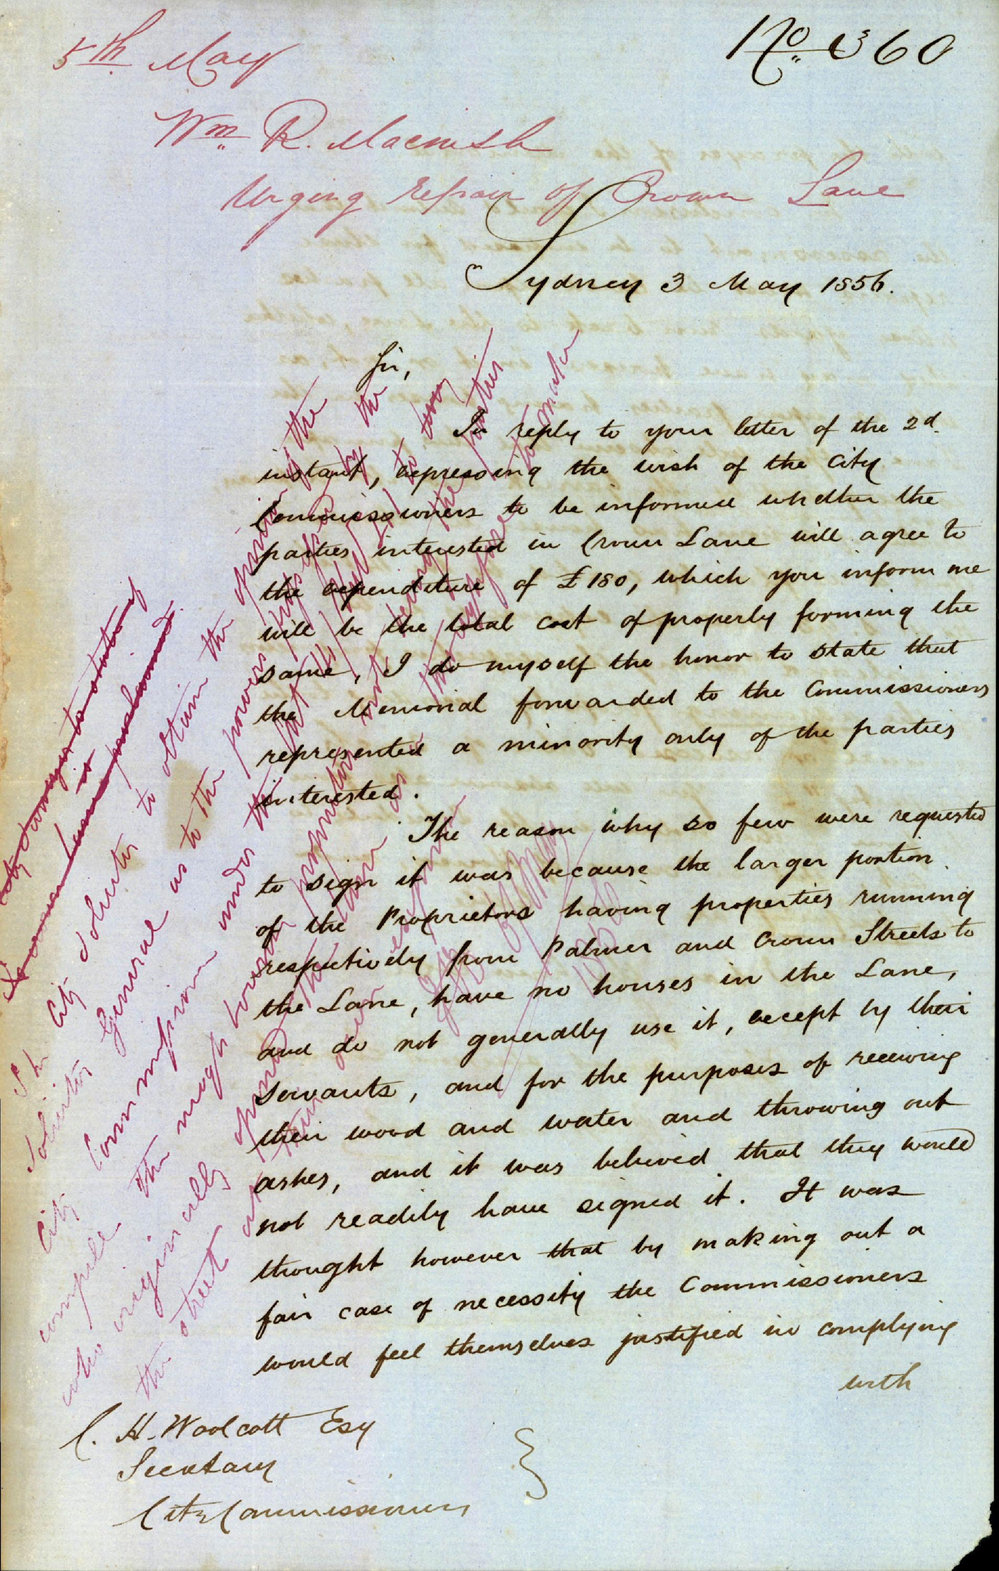 5th. May
No. 360
Wm. R. Macnish
Urging repair of Crown Lane
Sydney 3 May 1856.
Sir,
In reply to your letter of the 2d.
instant, expressing the wish of the City
Commissioners to be informed whether the
parties interested in Crown Lane will agree to
the expenditure of £180, which you inform me
will be the total cost of properly forming the
same, I do myself the honor to state that
the Memorial forwarded to the Commissioners
represented a minority only of the parties
interested.
The reason why so few were requested
to sign it was because the larger portion
of the Proprietors having properties running
respectively from Palmer and Crown Streets to
the Lane, have no houses in the Lane,
and do not generally use it, except by their
servants, and for the purposes of receiving
their wood and water and throwing out
ashes, and it was believed that they would
not readily have signed it. It was
thought however that by making out a
fair case of necessity the Commissioners
would feel themselves justified in complying
with
C. H. Woolcott Esq
Secretary
City Commissioners
City Solicitor to obtain the opinion of the
Solicitor General as to the powers possessed by the
City Commission under the
compel the
who originally opened
the street